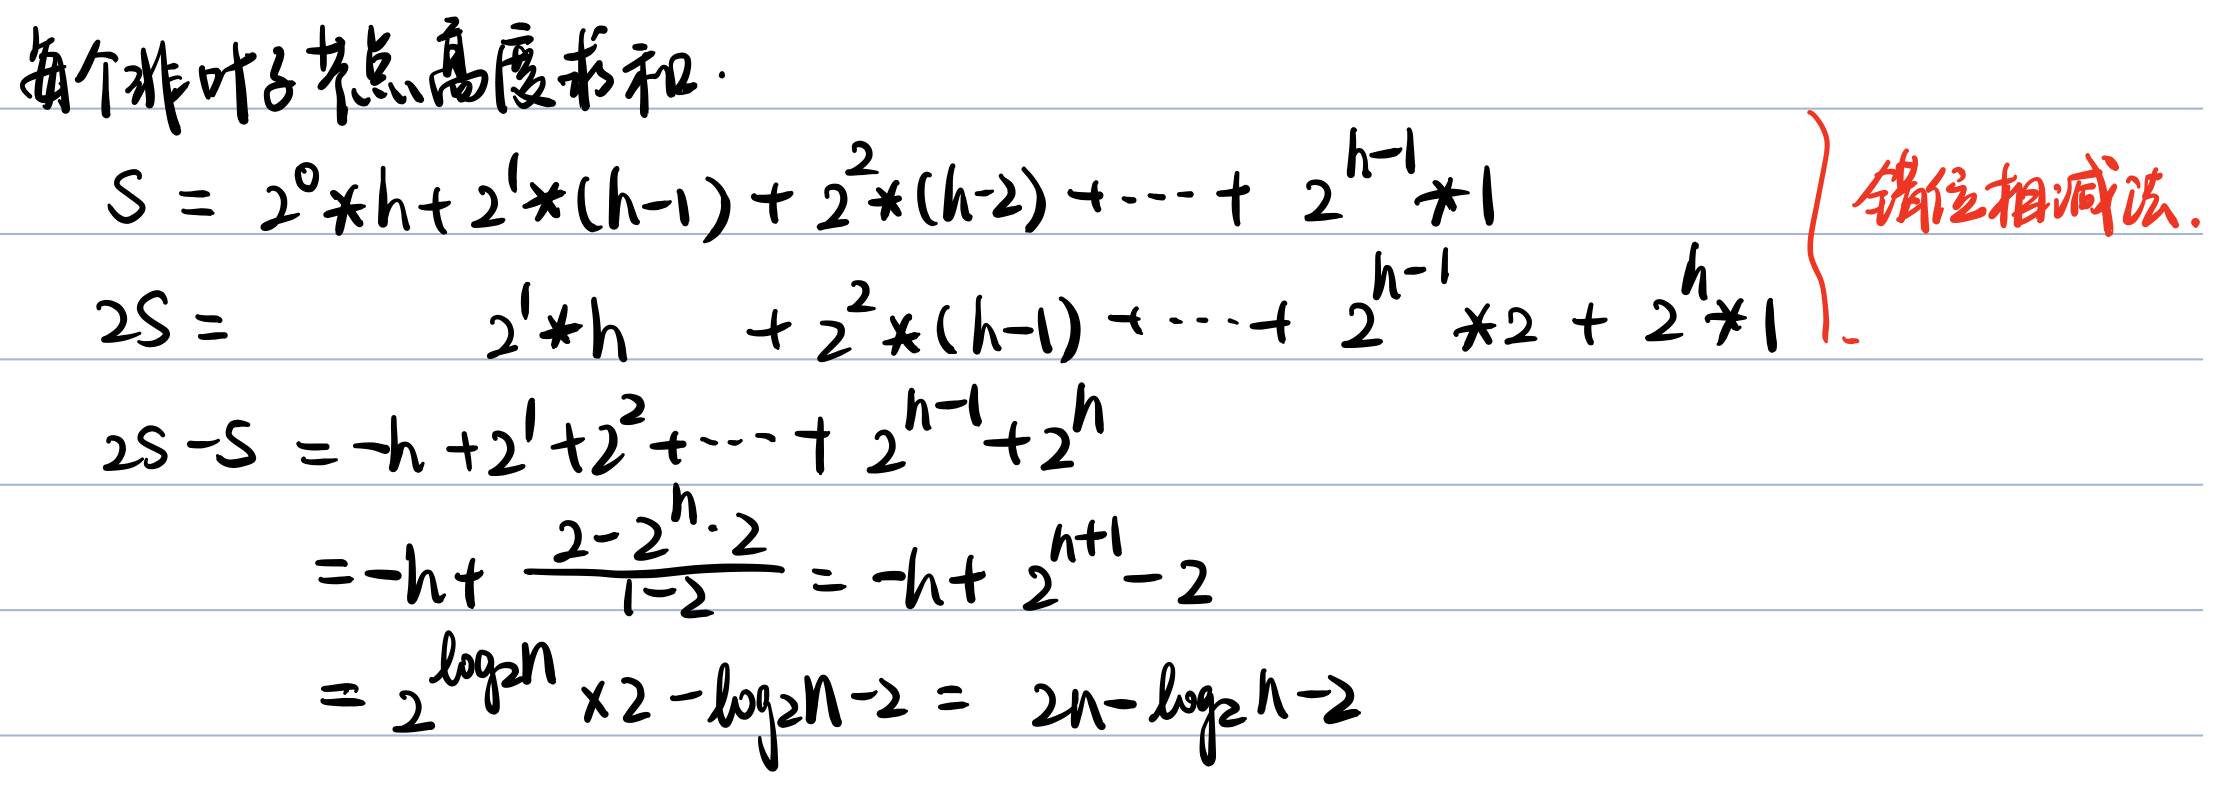 每个非叶子节点高度求和.
S = 2⁰*h+2¹*(h-1)+2²*(h-2)+···+2ʰ⁻¹*1
错位相减法.
2S = 2¹*h +2²*(h-1)+····+2ʰ⁻¹*2+2ʰ*1
2S-S = -h+2¹+2²+····+2ʰ⁻¹+2ʰ
= -h+ (2-2ʰ·2)/(1-2) = -h+2ʰ⁺¹-2
= 2^(log₂n) ×2 -log₂n-2 = 2n-log₂n-2